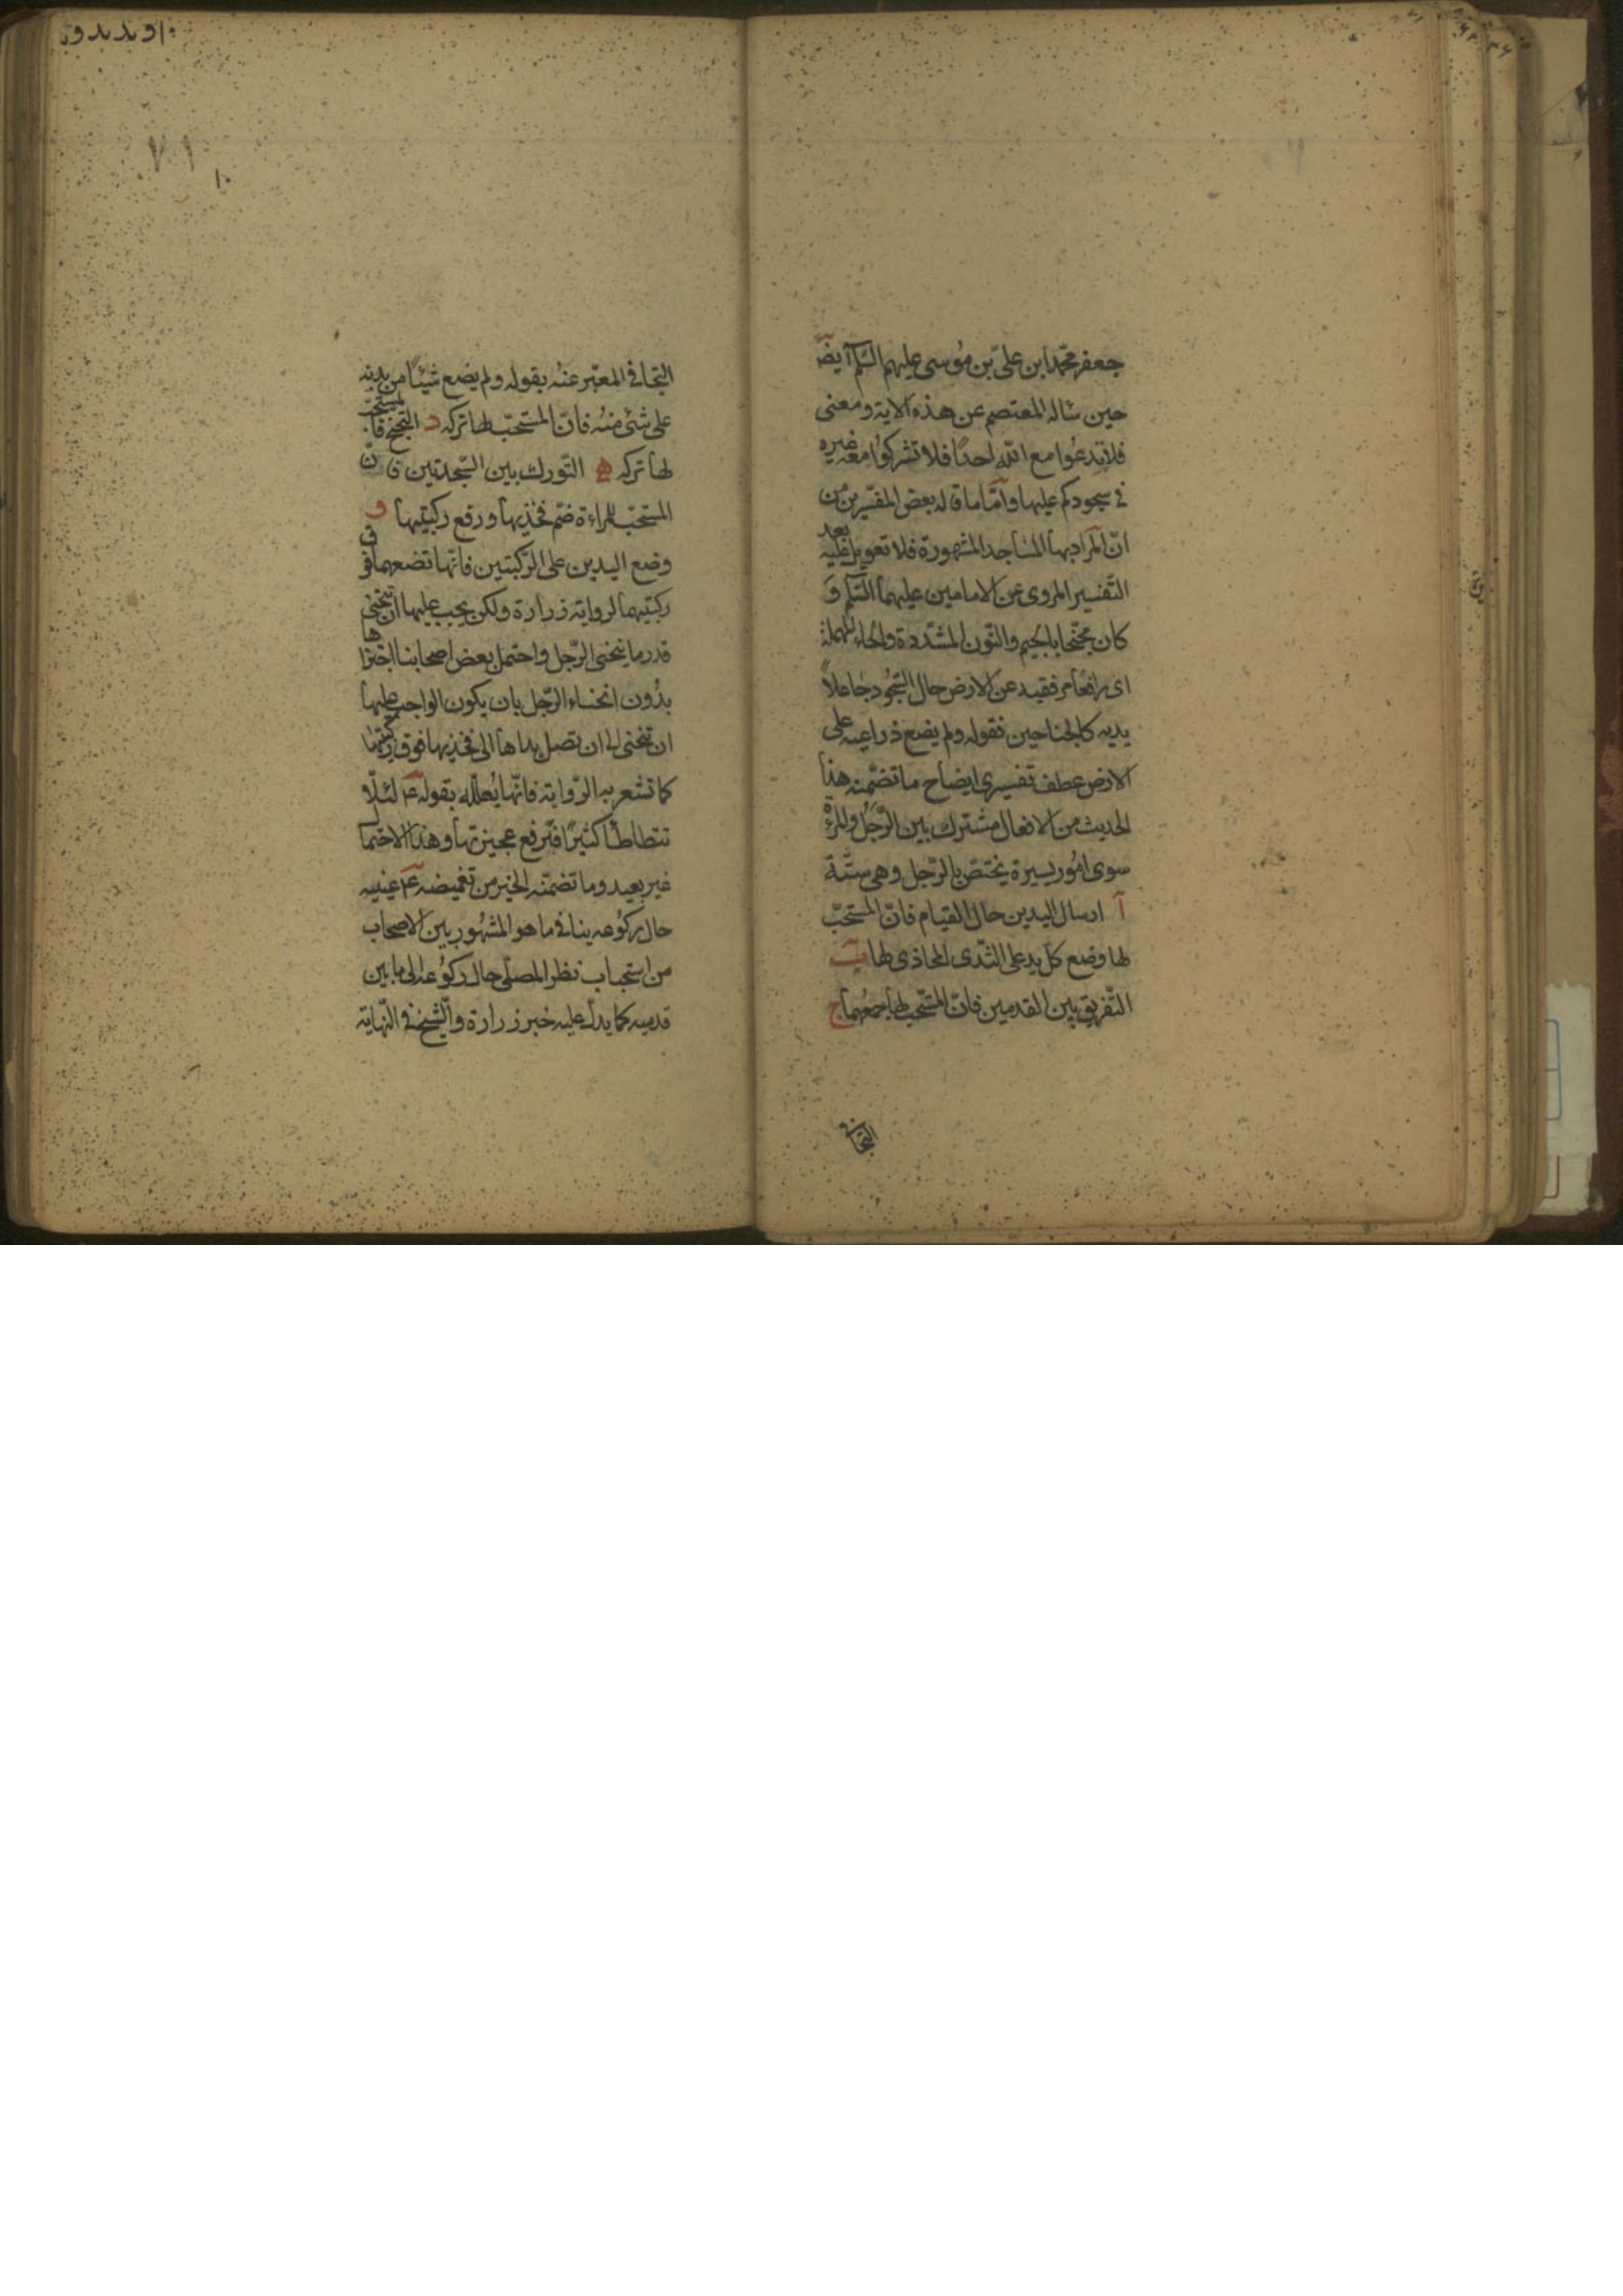 جعفر محمّد ابن علىّ بن مُوسى عليهم السّلم ايضً
حين سَاله المعتصم عن هذه الاية ومعنى
فلا تدعُوا مع اللّه احدًا فلا تشركُوا معه غيره
فى سجودكم عليها وامّا ما قاله بعض المفسّرين من
انّ المراد بها المساجد المشهورة فلا تعويل عليه بعد
التّفسير المروى عن الامامين عليهما السّلم وَ
كان مجنّحا بالجيم والنّون المشدّدة والحاء المهملة
اى رافعًا مرفقيه عن الارض حال السّجُود جاعلاً
يديه كالجناحين فقوله ولم يضع ذراعيه على
الارض عطف تفسيرى ايضاح ما تضمّنه هذا
الحديث من الافعال مشترك بين الرّجُل والمرءة
سوى امُور يسيرة يختصّ بالرّجل وهى ستّة
آ ارسال اليدين حال القيام فانّ المستحبّ
لها وضع كلّ يد على الثّدى المحاذى لها ب
التّفريق بين القدمين فانّ المستحّب لها جمعُهما ج
التجافى
٧١
التجافى المعبّر عنهُ بقوله ولم يضع شيئًا من بدنه
على شئ منهُ فانّ المستحبّ لها تركه د التجنح فانّ المستحبّ
لها تركه ه التّورك بين السّجدتين فانّ
المستحبّ للمراءة ضمّ فخذيها ورفع ركبتيها و
وضع اليدين على الرّكبتين فانّها تضعهما فوق
ركبتيهما لرواية زرارة ولكن يجب عليها ان تنحنى
قدر ما ينحنى الرّجل واحتمل بعض اصحابنا اجتزاها
بدُون انحناء الرّجل بان يكون الواجب عليها
ان تنحنى الى ان تصل يداها الى فخذيها فوق ركبتيها
كما تشعر به الرّواية فانّها يُعلّله بقوله ع لئلّا
تتطاطأ كثيرًا فترفع عجيزتها وهذا الاحتمال
غير بعيد وما تضمّنه الخبر من تغميضه ع عينيه
حال ركُوعه ينافى ما هو المشهُور بين الاصحاب
من استحباب نظر المصلّى حال ركُوعه الى ما بين
قدميه كما يدلّ عليه خبر زرارة والشّيخ فى النّهاية